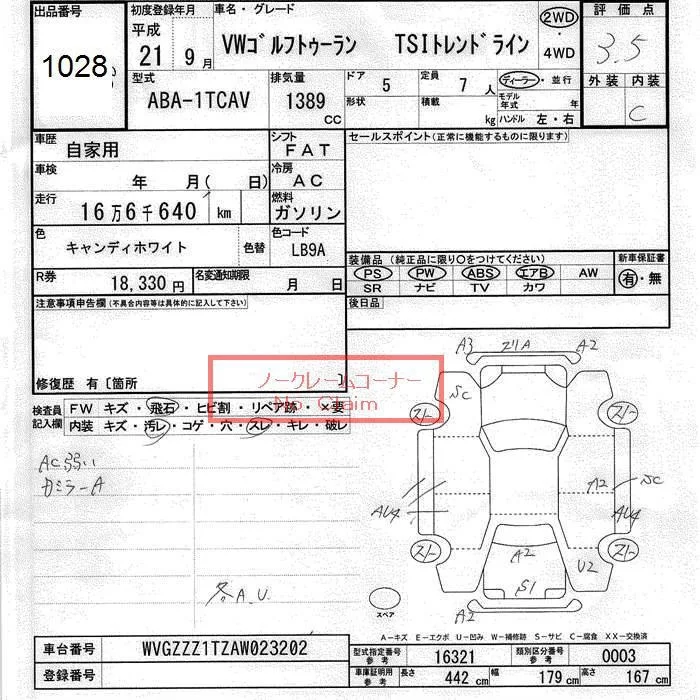 出品番号 初度登録年月 車名・グレード 2WD 評価点
1028 平成 VWゴルフトゥーラン TSIトレンドライン 3.5
21 9月 4WD
型式 排気量 ドア 5 定員 7人 ディーラー・並行 外装 内装
ABA-1TCAV 1389 cc 形状 積載 kg モデル年式 年 C
ハンドル 左・右
車歴 自家用 シフト FAT セールスポイント(正常に機能するものに限ります)
車検 年 月( 日) 冷房 AC
走行 16万6千640 km 燃料 ガソリン
色 キャンディホワイト 色替 色コード LB9A
装備品(純正品に限り○をつけてください) 新車保証書
R券 18,330円 名変通知期限 月 日 PS PW ABS エアB AW 有・無
SR ナビ TV カワ
注意事項申告欄(不具合内容等は具体的に記入して下さい) 後日品
修復歴 有〔箇所 〕
ノークレームコーナー
No Claim
検査員記入欄 FW キズ・飛石・ヒビ割・リペア跡・×要
内装 キズ・汚レ・コゲ・穴・スレ・キレ・破レ
AC弱い
カミラーA
各A.U.
A3 A2
SC
スレ スレ
A2 SC
AU4 AU4
スレ スレ
A2 U2
S1
A2
スペア
A-キズ E-エクボ U-凹み W-補修跡 S-サビ C-腐食 XX-交換済
車台番号 WVGZZZ1TZAW023202 型式指定番号 参考 16321 類別区分番号 参考 0003
登録番号 車庫証明用 参考 長さ 442 cm 幅 179 cm 高さ 167 cm